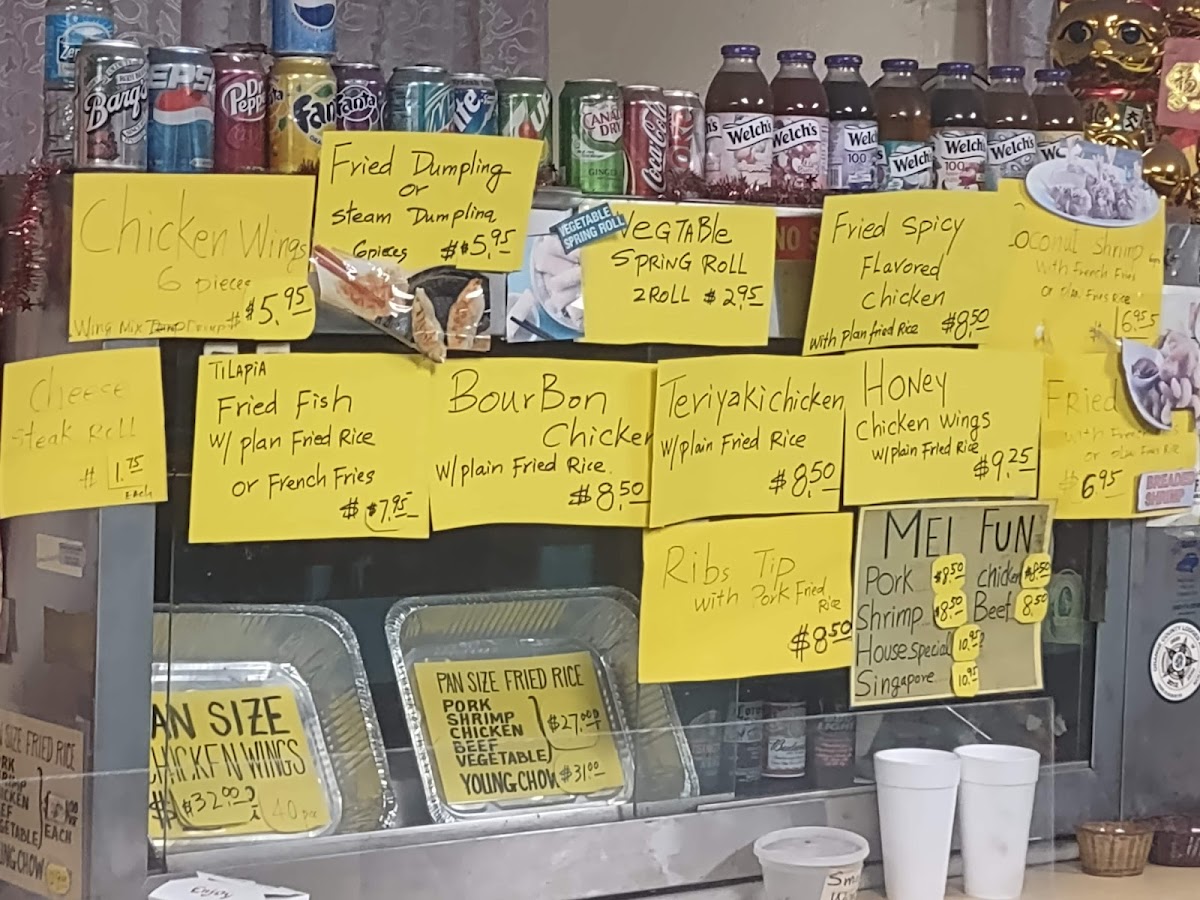 Barq's
PEPSI
Dr Pepper
Fanta
Fanta
CANADA DRY
GINGER
Coca-Cola
Welch's
Welch's
Welch's
100
Welch's
Welch's
100
Welch's
Chicken Wings
6 pieces
$5.95
Fried Dumpling
or
Steam Dumpling
6pieces $5.95
VEGETABLE
SPRING ROLL
VEGTABLE
SPRING ROLL
2 ROLL $2.95
NO S
Fried Spicy
Flavored
chicken
with plan fried Rice $8.50
Coconut Shrimp
with French Fries
or plan Fries Rice
6.95
Cheese
Steak Roll
$1.75
Each
TILAPIA
Fried Fish
W/ plan Fried Rice
or French Fries
$7.95
BourBon
Chicken
W/plain Fried Rice.
$8.50
Teriyaki chicken
W/plain Fried Rice
$8.50
HONEY
chicken wings
W/plain Fried Rice
$9.25
Fried
$6.95
BREADED
SHRIMP
Ribs Tip
with Pork Fried
Rice
$8.50
MEI FUN
Pork $8.50 chicken $8.50
Shrimp $8.50 Beef 8.50
House special 10.95
Singapore 10.95
AN SIZE
CHICKEN WINGS
$32.00
40 pcs
PAN SIZE FRIED RICE
PORK
SHRIMP
CHICKEN
BEEF
VEGETABLE
$27.00
YOUNG CHOW $31.00
SIZE FRIED RICE
EACH
Enjoy